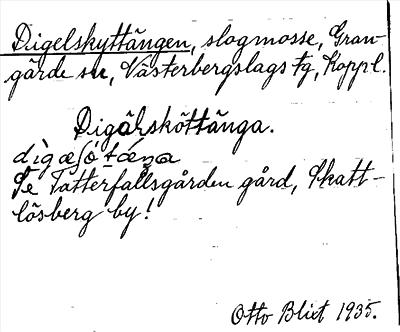 Digelskyttängen, slogmosse, Gran-
gärde sn, Västerbergslags tg, Koppl.
Digälsköttänga.
dìgæʃö̀tæ̀ŋa
Se Tatterfallsgården gård, Skatt-
lösberg by!
Otto Blixt 1935.